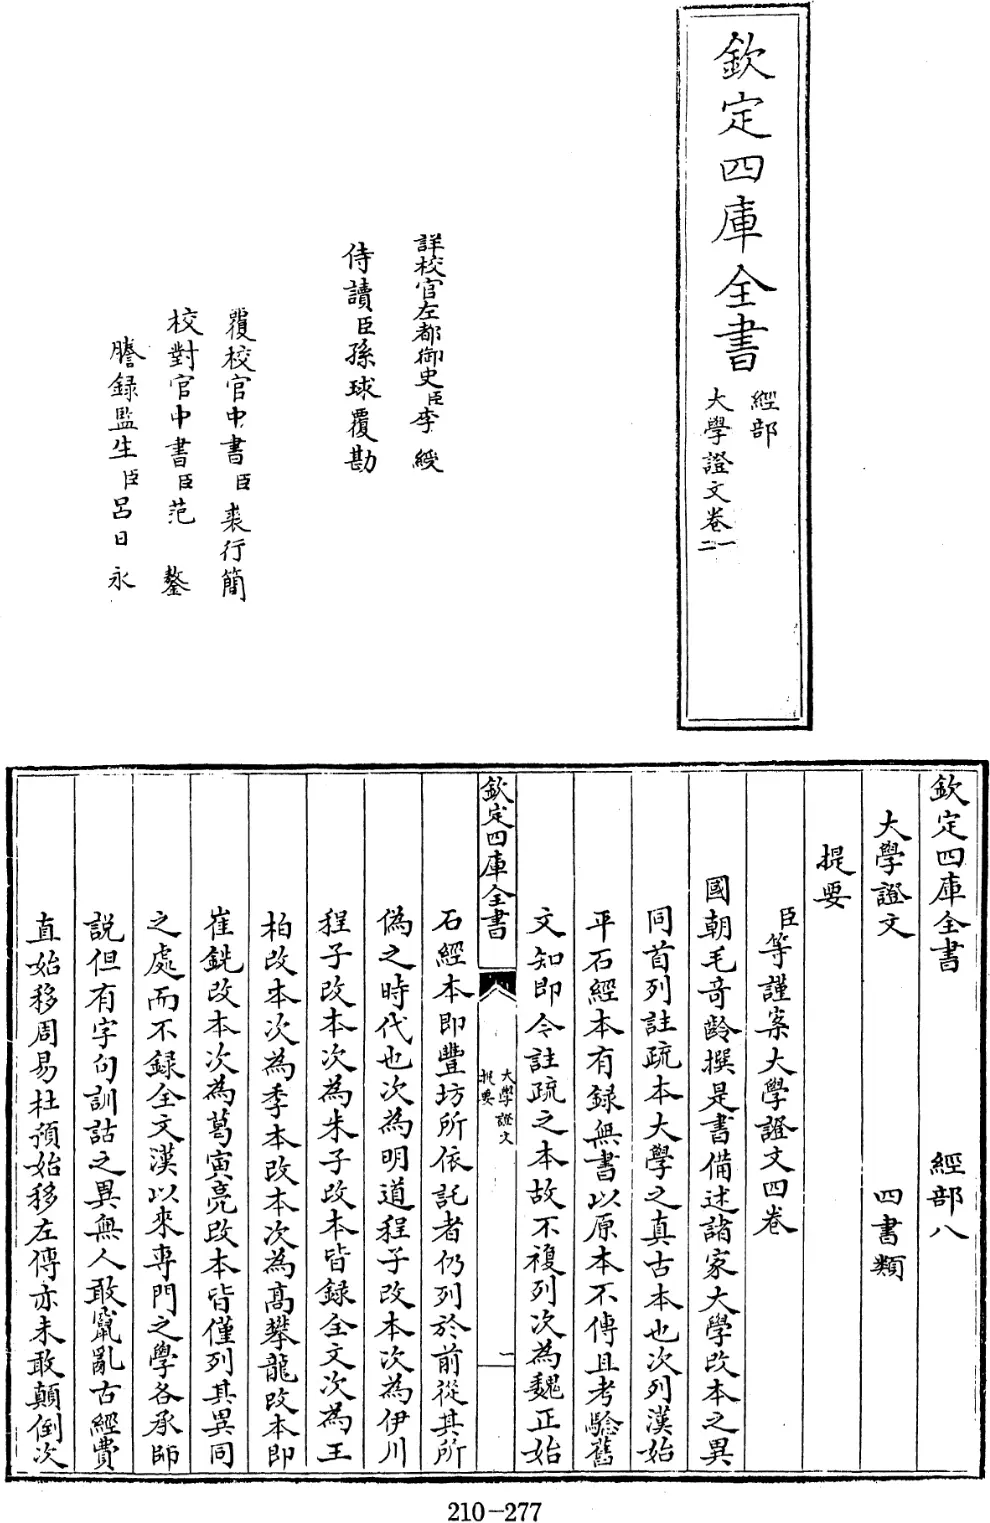 欽定四庫全書
經部
大學證文卷一
二
詳校官左都御史臣李綬
侍讀臣孫球覆勘
覆校官中書臣裴行簡
校對官中書臣范鏊
謄録監生臣呂日永
欽定四庫全書 經部八
大學證文 四書類
提要
臣等謹案大學證文四卷
國朝毛奇齡撰是書備述諸家大學改本之異
同首列註疏本大學之真古本也次列漢始
平石經本有録無書以原本不傳且考驗舊
文知即今註疏之本故不複列次為魏正始
欽定四庫全書
大學證文
提要
一
石經本即豐坊所依託者仍列於前從其所
偽之時代也次為明道程子改本次為伊川
程子改本次為朱子改本皆録全文次為王
柏改本次為季本改本次為高攀龍改本即
崔銑改本次為葛寅亮改本皆僅列其異同
之處而不録全文漢以來專門之學各承師
說但有字句訓詁之異無人敢竄亂古經費
直始移周易杜預始移左傳亦未敢顛倒次
210-277